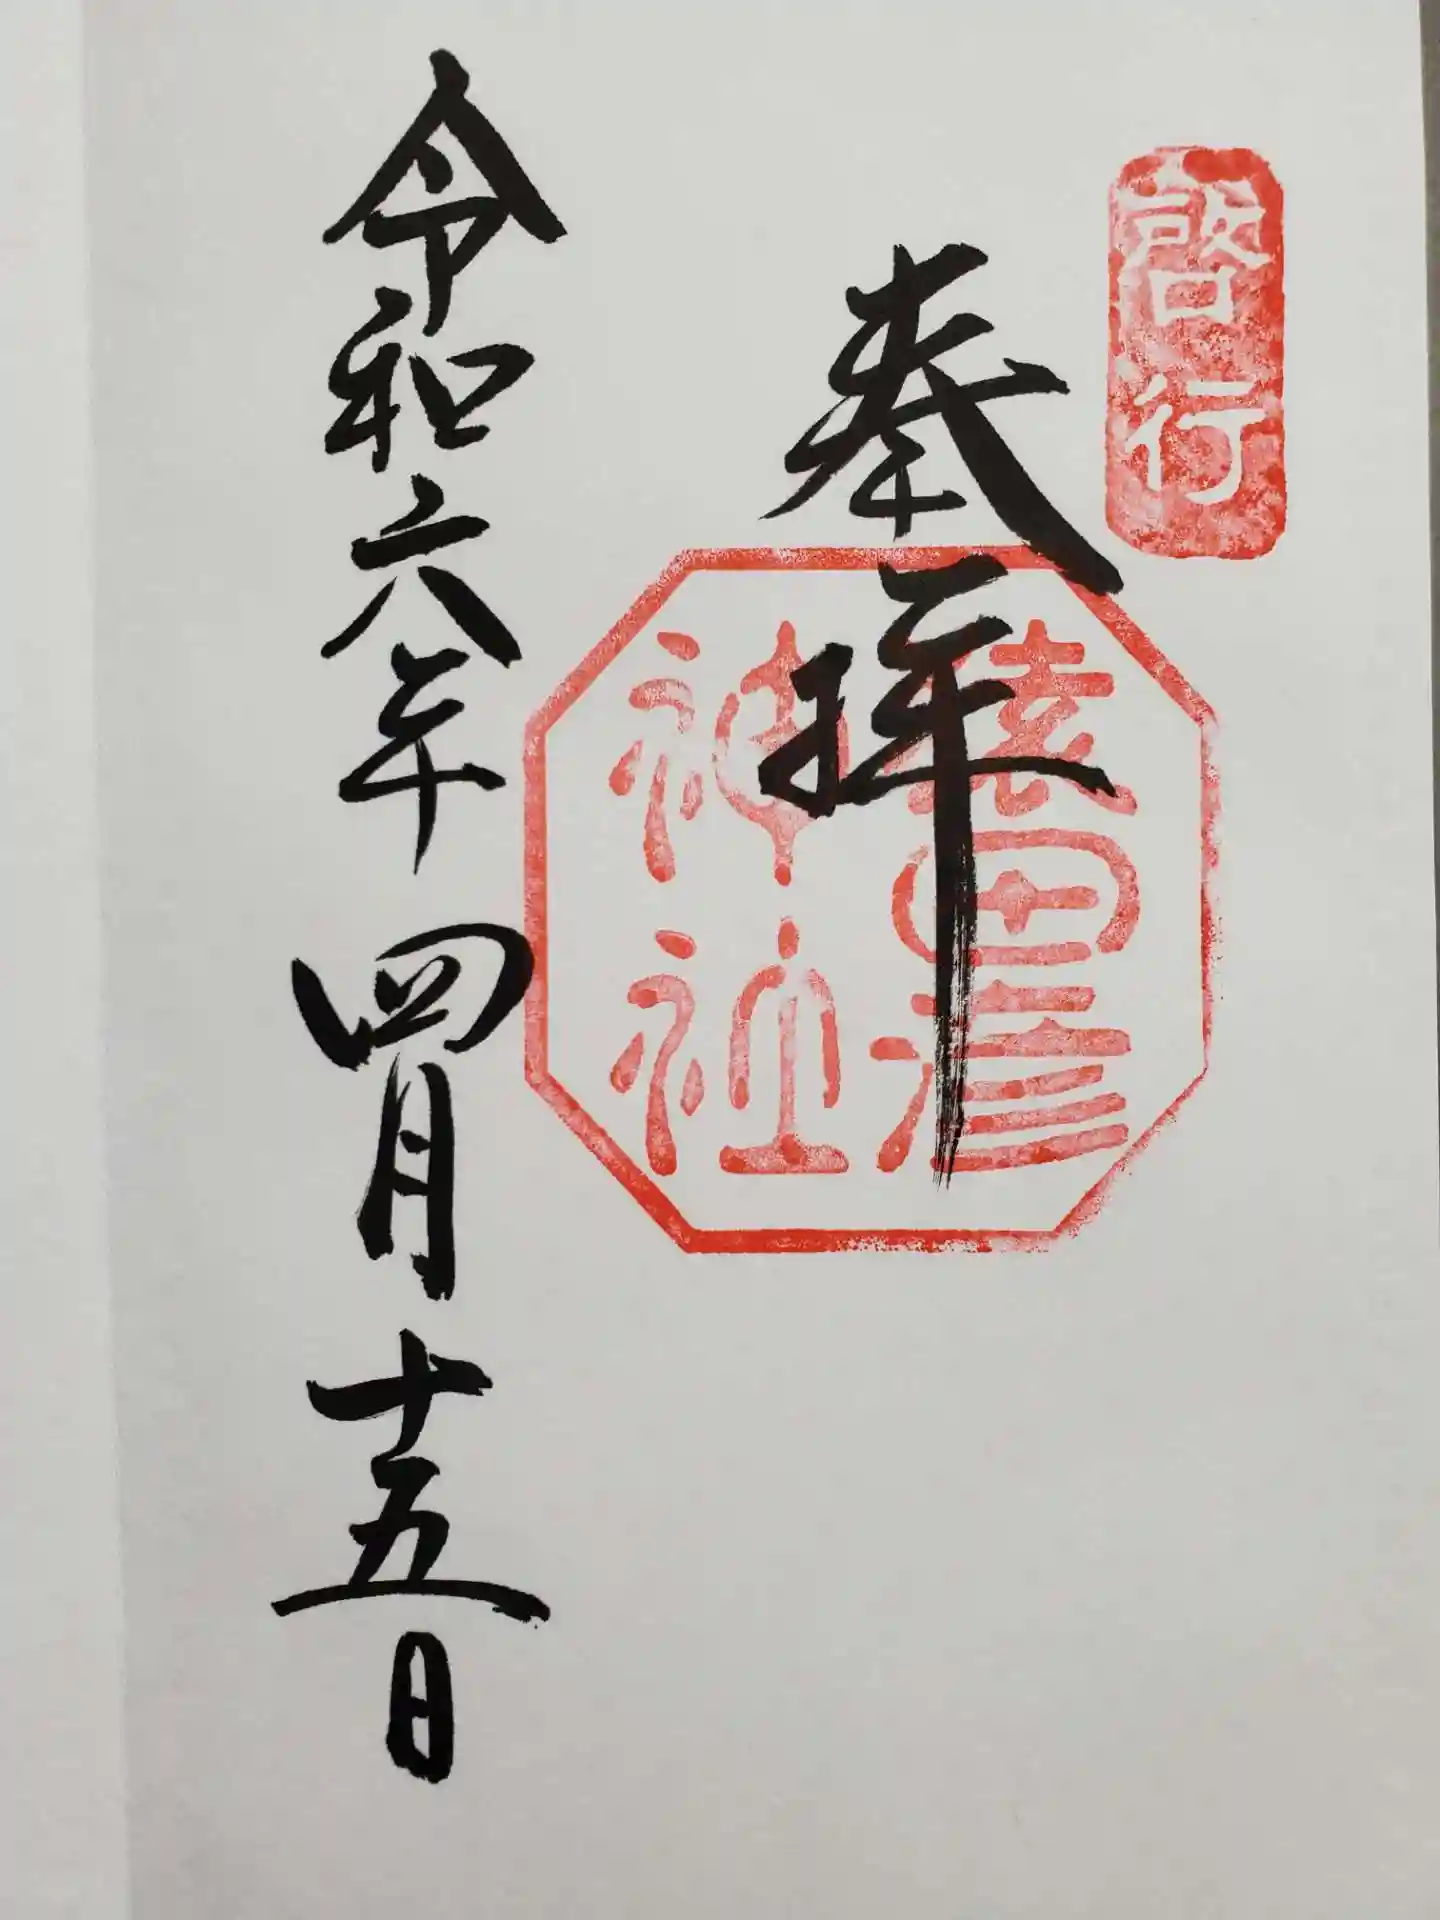 啓行
奉拝
猿田彦
神社
令和六年四月十五日